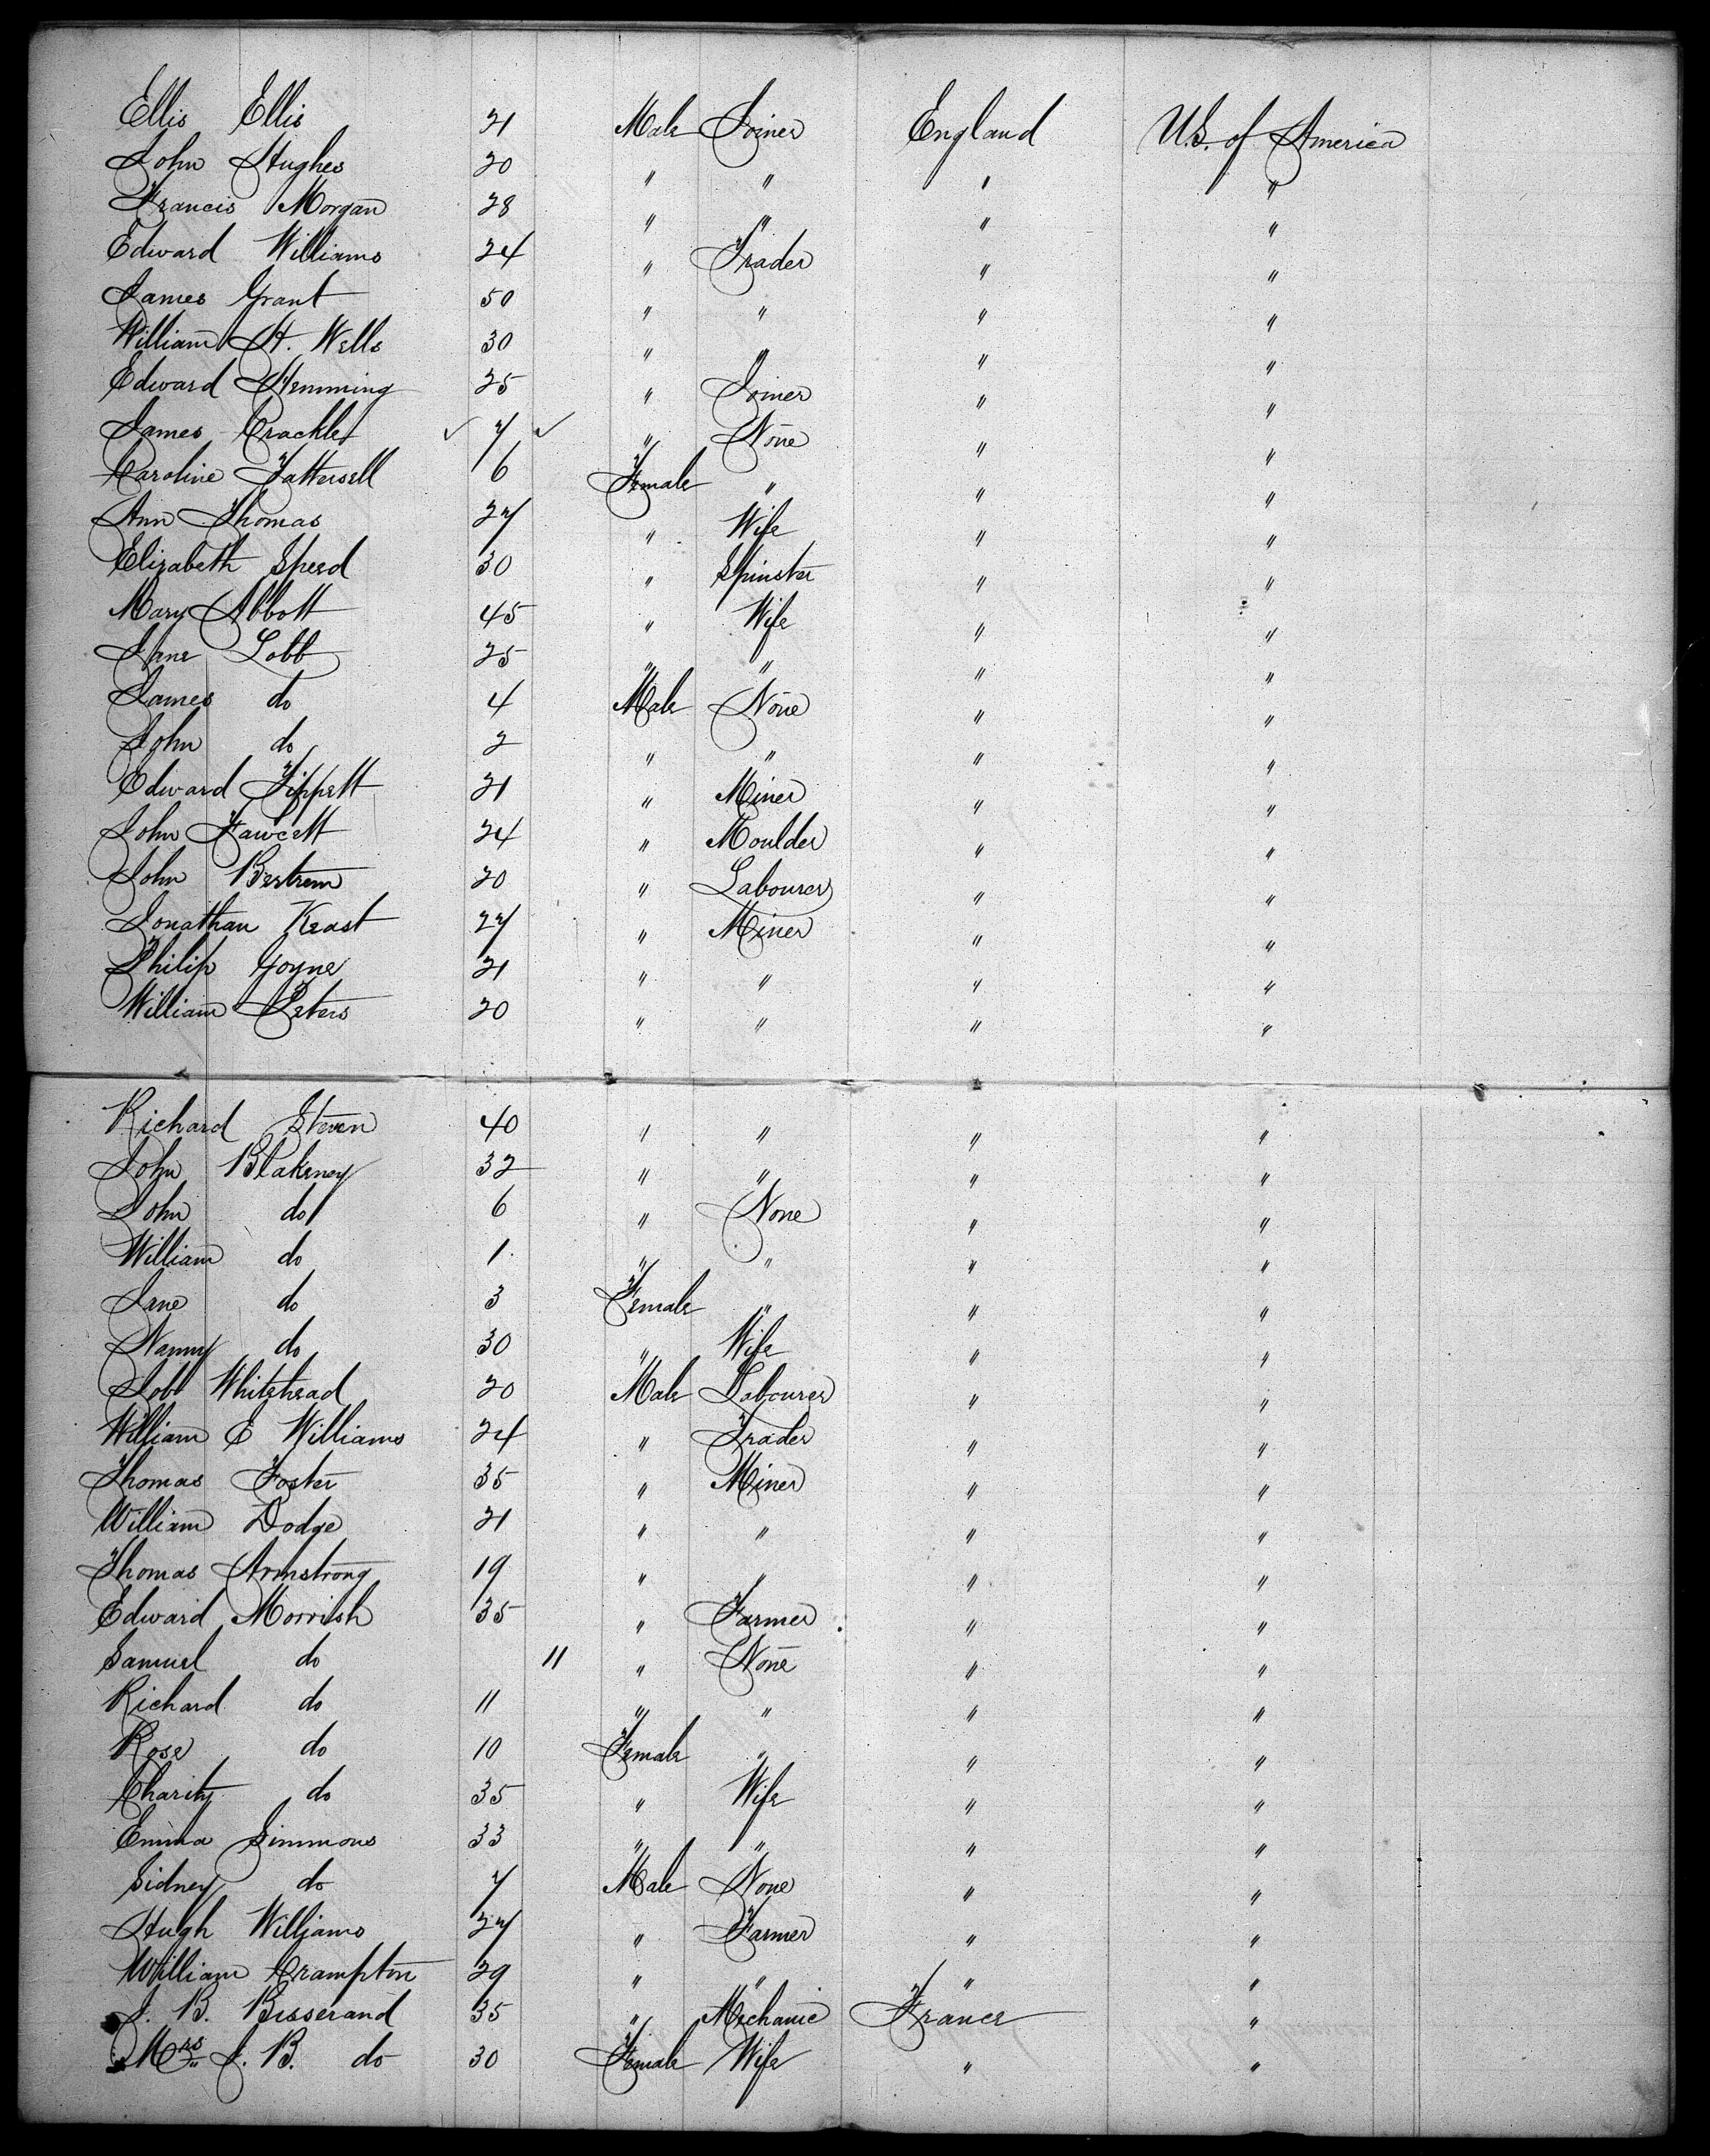 Ellis Ellis 21 Male Joiner England U.S. of America
John Hughes 20 " " " "
Francis Morgan 28 " " " "
Edward Williams 24 " Trader " "
James Grant 50 " " " "
William H. Wells 30 " " " "
Edward Hemming 25 " Joiner " "
James Crackle ✓ 7 ✓ " None " "
Caroline Tattersell 6 Female " " "
Ann Thomas 27 " Wife " "
Elizabeth Speed 30 " Spinster " "
Mary Abbott 45 " Wife " "
Jane Lobb 25 " " " "
James do 4 Male None " "
John do 2 " " " "
Edward Tippett 21 " Miner " "
John Fawcett 24 " Moulder " "
John Bertrem 20 " Labourer " "
Jonathan Keast 27 " Miner " "
Philip Goyne 21 " " " "
William Peters 20 " " " "
Richard Steven 40 " " " "
John Blakeney 32 " " " "
John do 6 " None " "
William do 1 " " " "
Jane do 3 Female " " "
Nanny do 30 " Wife " "
Job Whitehead 20 Male Labourer " "
William E Williams 24 " Trader " "
Thomas Foster 35 " Miner " "
William Dodge 21 " " " "
Thomas Armstrong 19 " " " "
Edward Morrish 35 " Farmer " "
Samuel do 11 " None " "
Richard do 11 " " " "
Rose do 10 Female " " "
Charity do 35 " Wife " "
Emma Simmons 33 " " " "
Sidney do 7 Male None " "
Hugh Williams 27 " Farmer " "
William Crampton 29 " " " "
J. B. Bisserand 35 " Mechanic France "
Mrs J. B. do 30 Female Wife " "